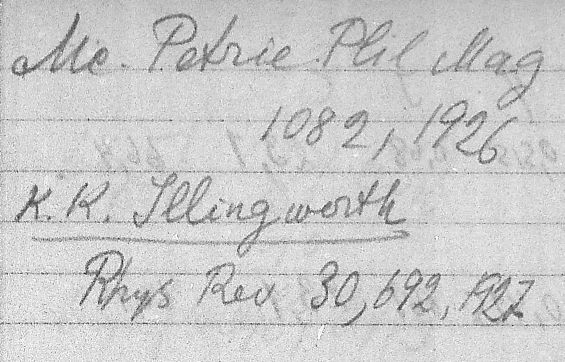 Mc. Petrie Phil Mag
1082, 1926
K. K. Illingworth
Phys Rev 30, 692, 1927